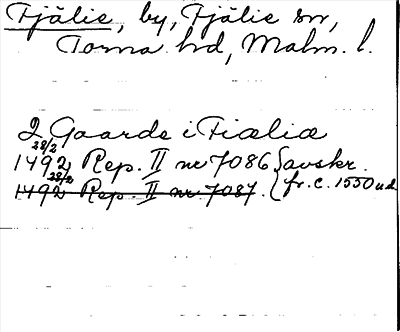 Fjälie, by, Fjälie sn,
Torna hd, Malm. l.
2 Gaarde i Fiælia
28/2
1492 Rep. II nr 7086 } avskr.
28/2
1492 Rep. II nr 7087. } fr. c. 1550